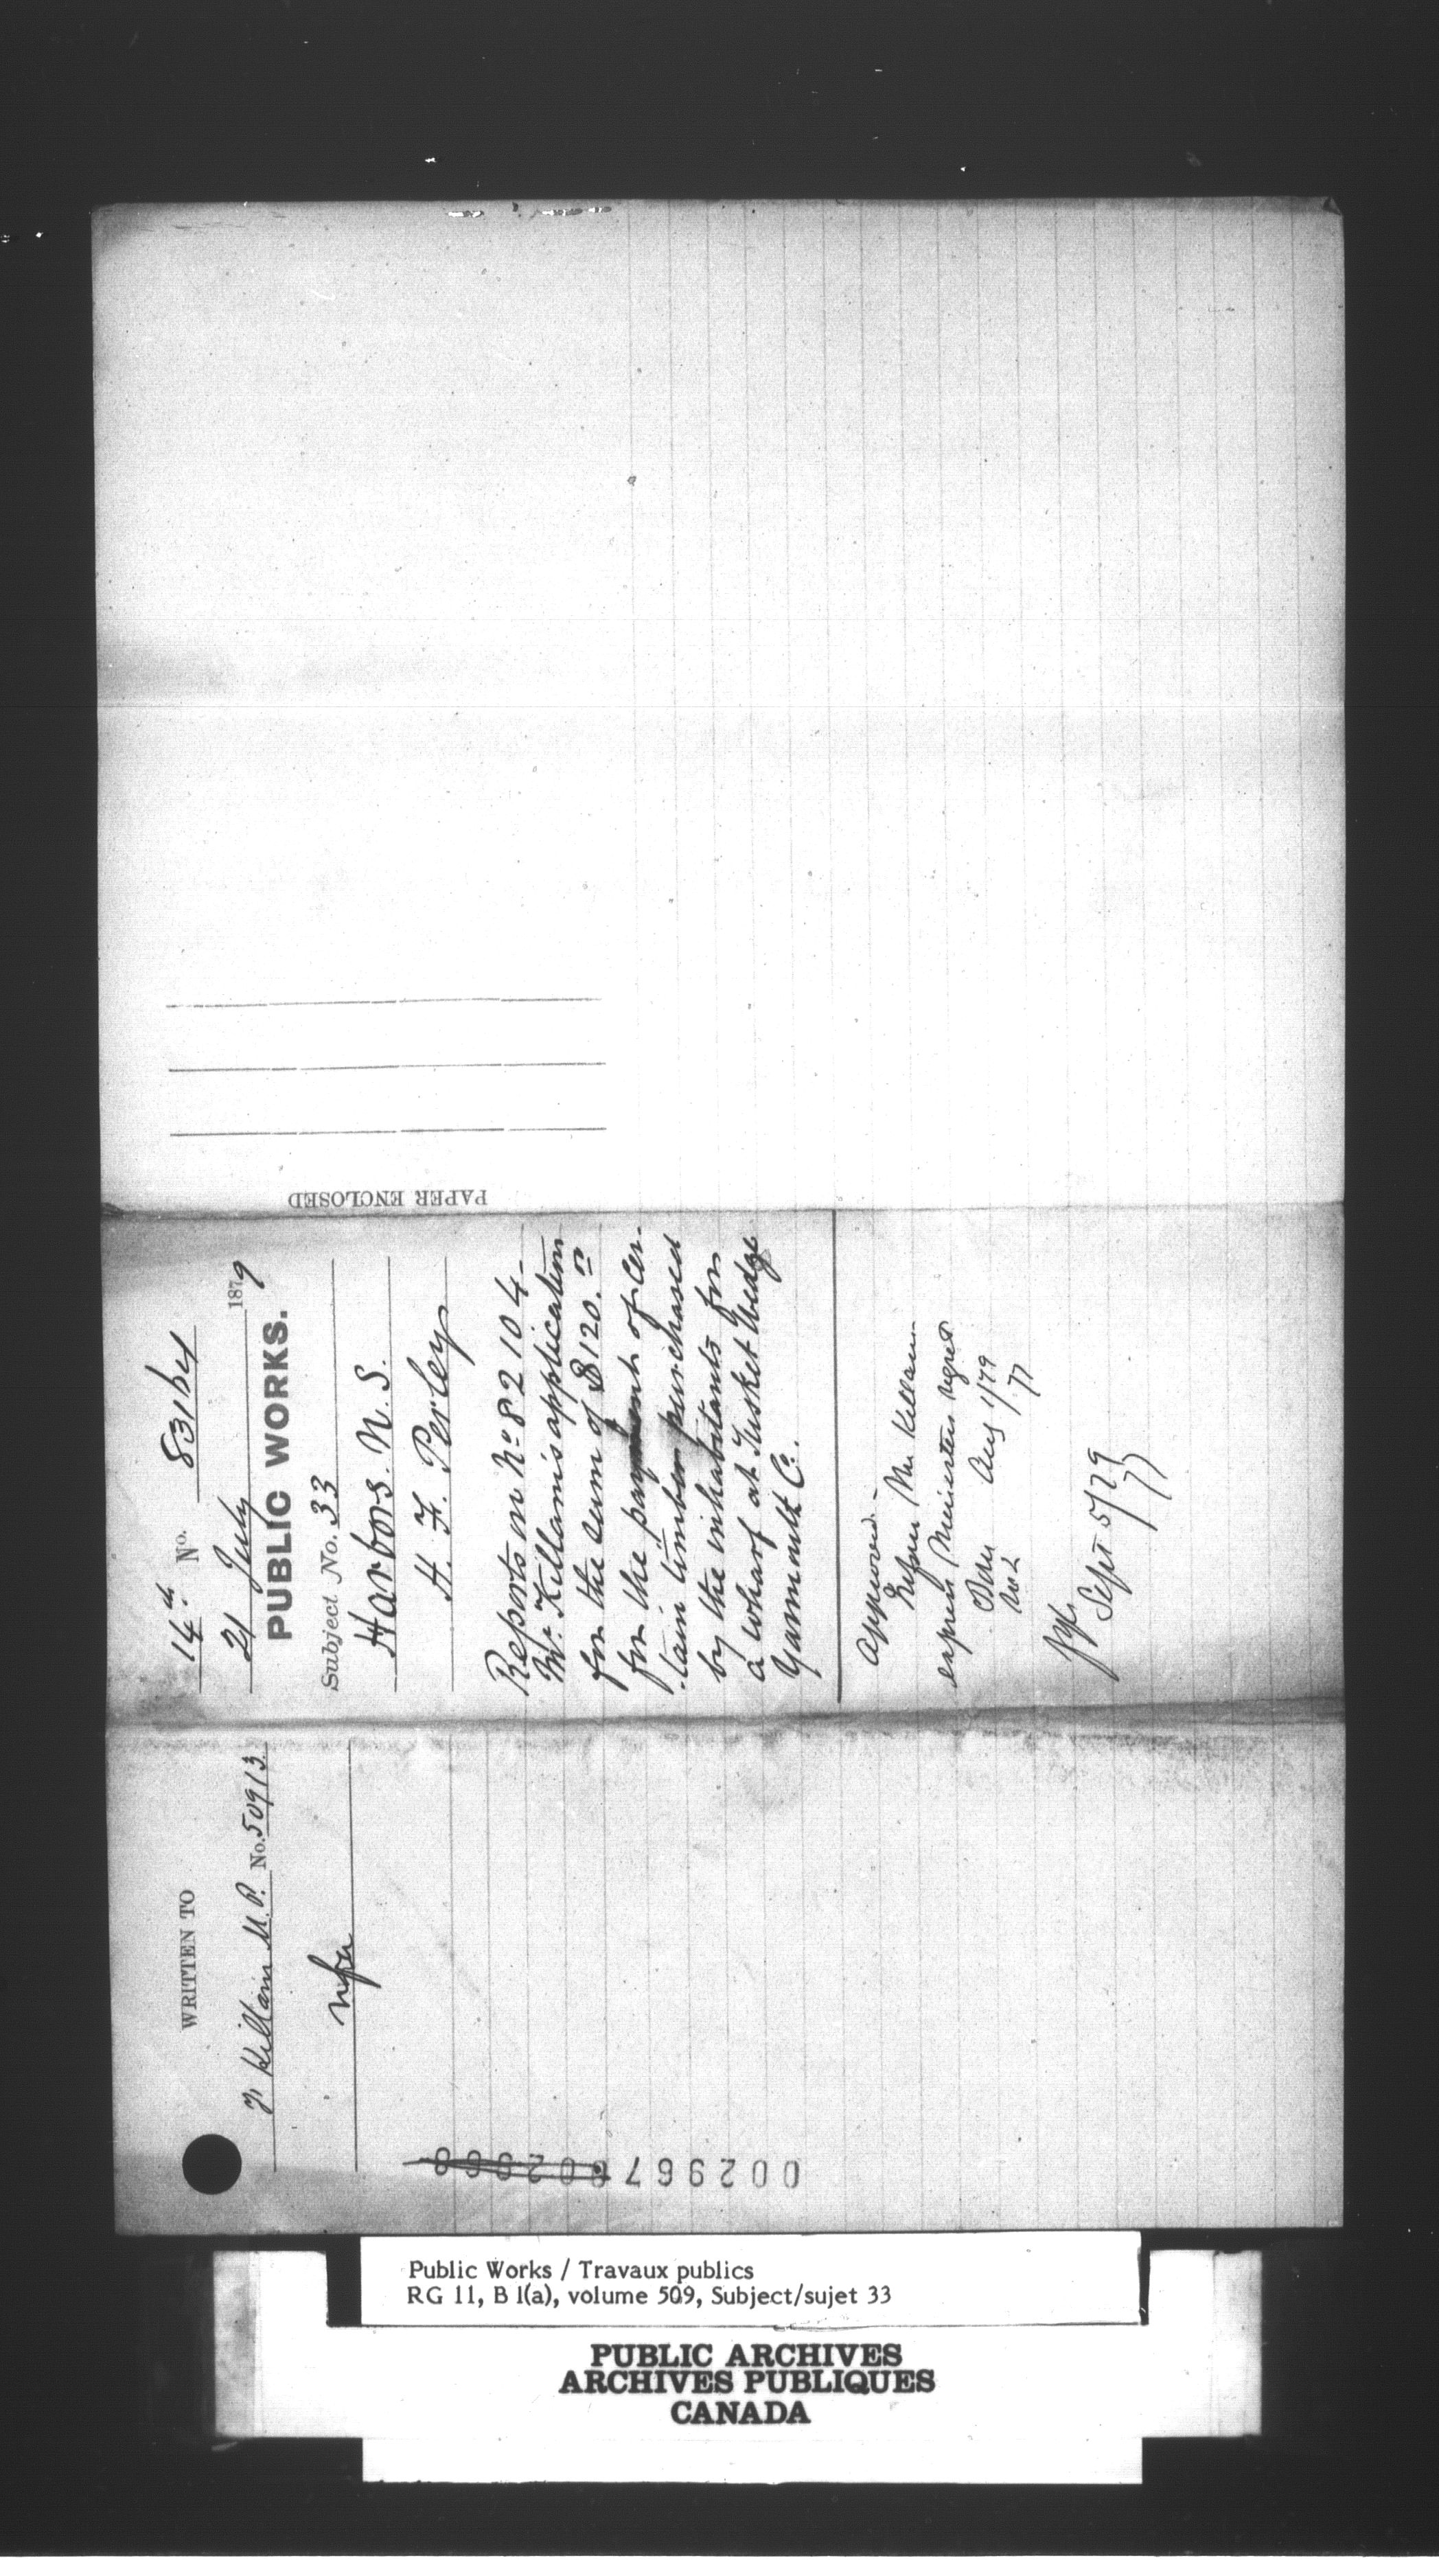 WRITTEN TO
F. Killam M.P. No. 50913
14th No. 83164
21 July 1879
PUBLIC WORKS.
Subject No. 33
Harbors. N. S.
H. F. Perley
Reports on No 82104-
Mr. Killam's application
for the sum of $120.00
for the payment of cer-
-tain timber purchased
by the inhabitants for
a wharf at Tusket Wedge
Yarmouth Co.
Approved.-
Inform Mr Killam
express Minister's regret
Aug 1/79
Sept 5/79
PAPER ENCLOSED
002967
002968
Public Works / Travaux publics
RG 11, B 1(a), volume 509, Subject/sujet 33
PUBLIC ARCHIVES
ARCHIVES PUBLIQUES
CANADA